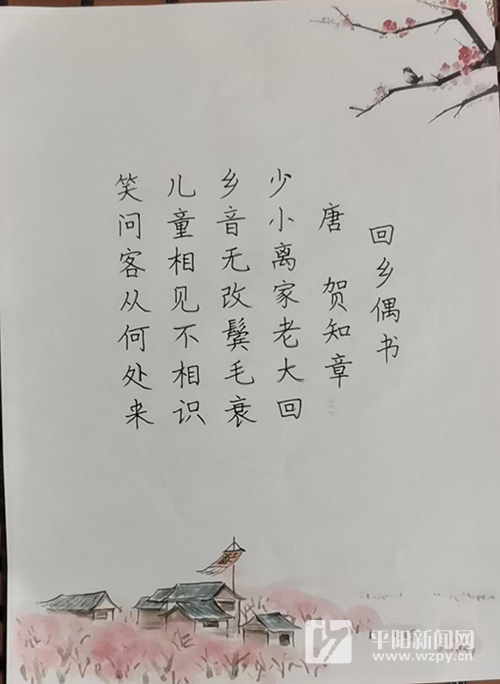 回乡偶书
唐 贺知章
少小离家老大回
乡音无改鬓毛衰
儿童相见不相识
笑问客从何处来
平阳新闻网
www.wzpy.cn